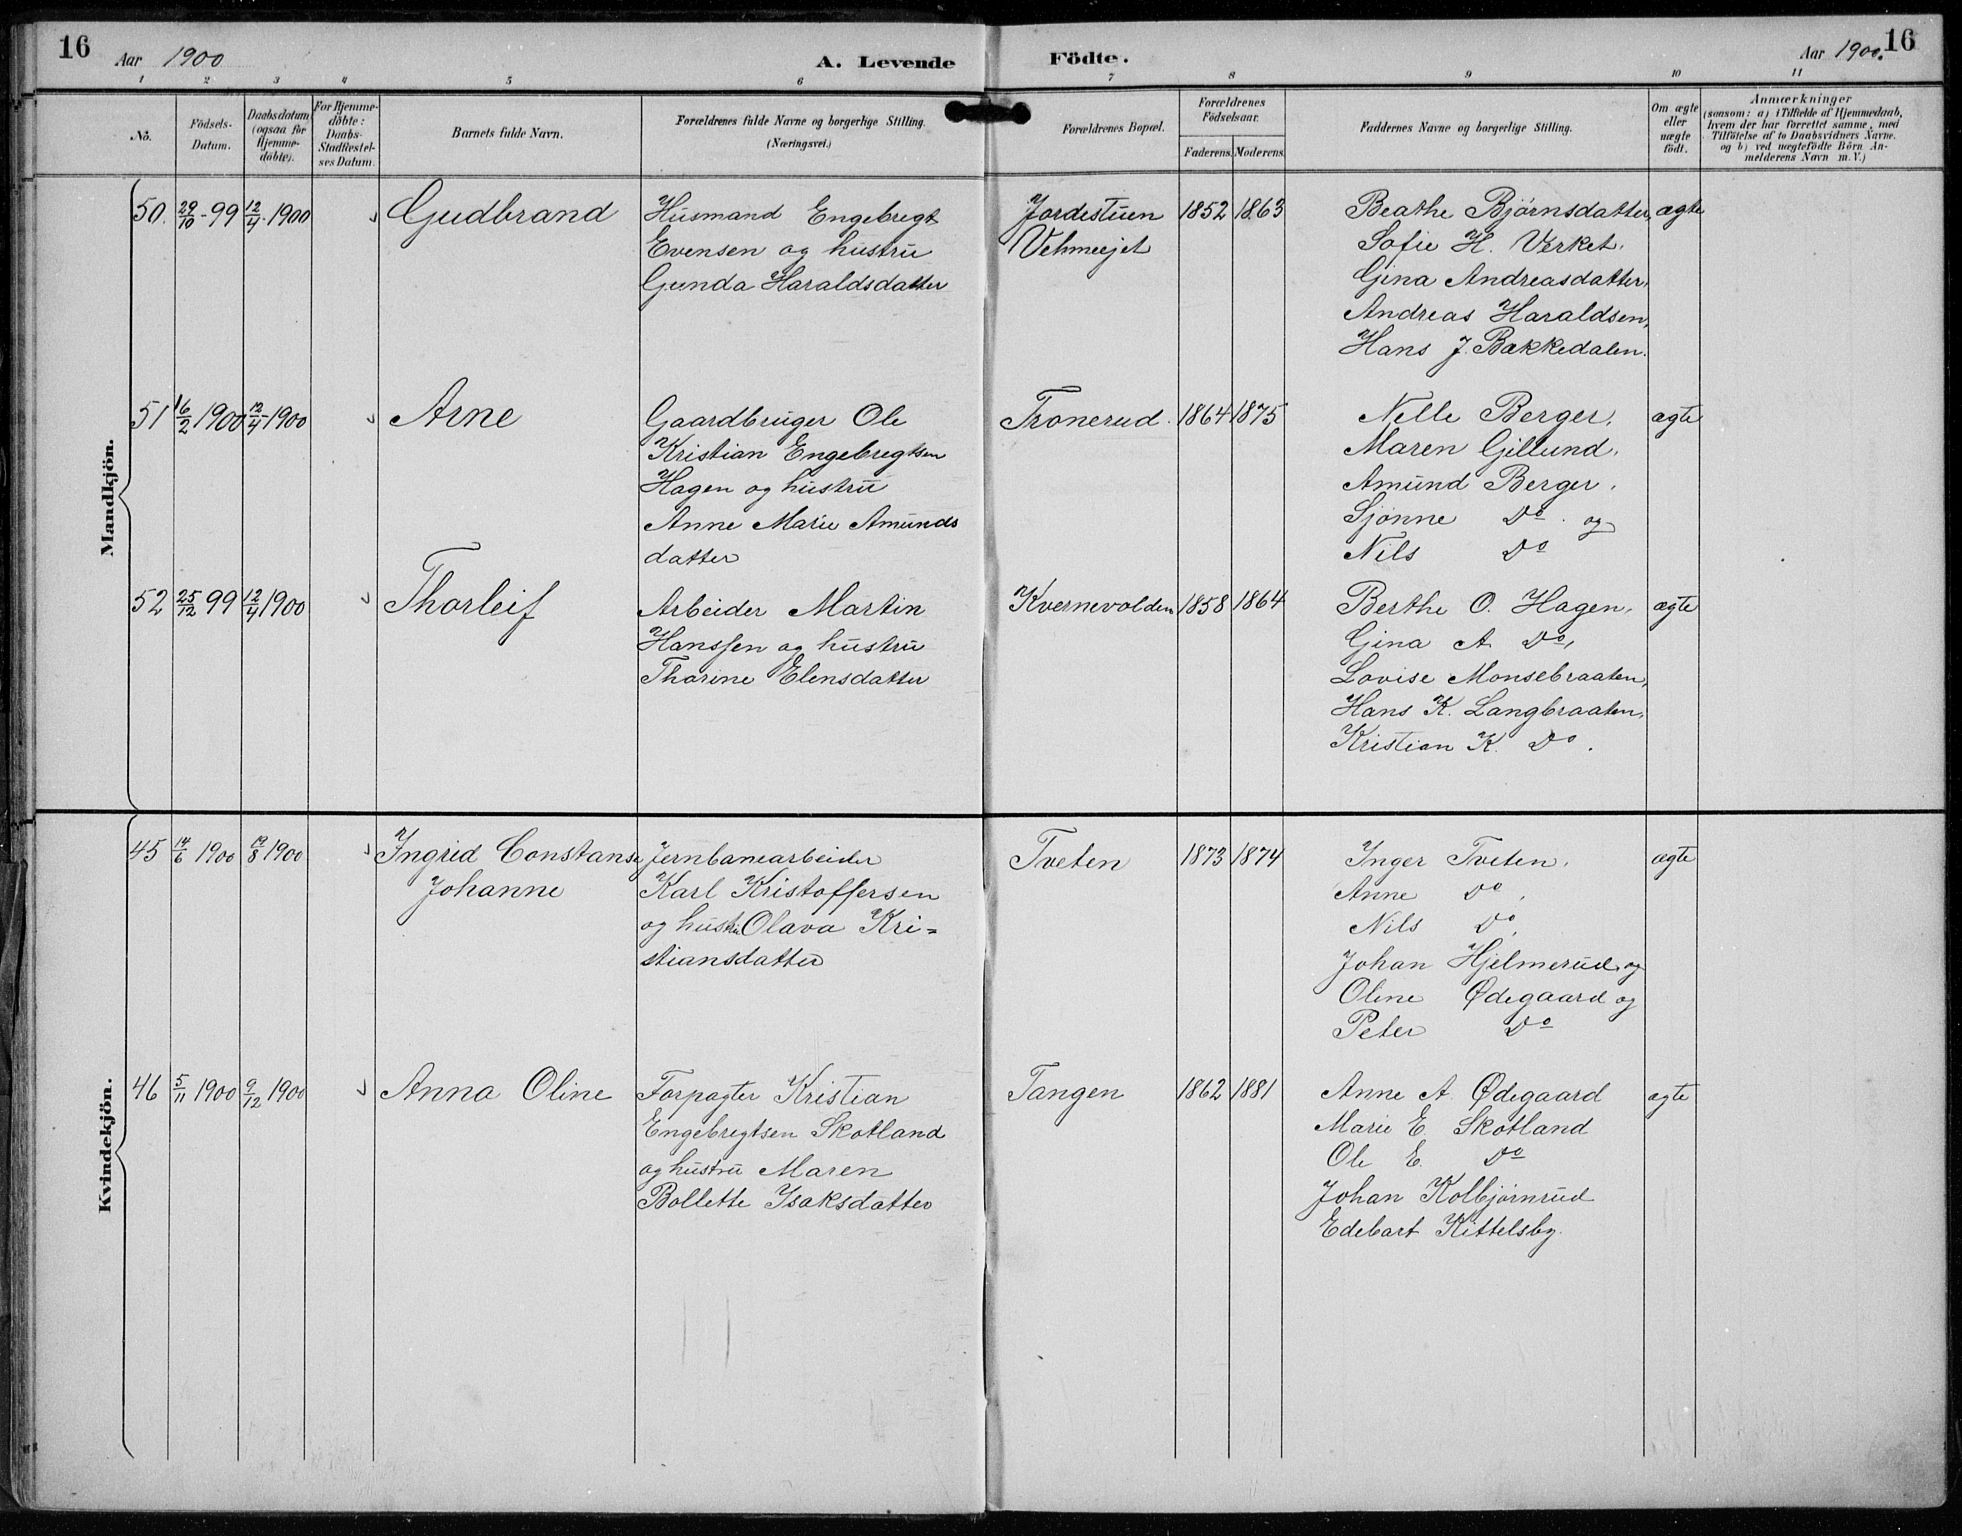 16 Aar 1900 A. Levende Födte. Aar 1900. 16
1 2 3 4 5 6 7 8 9 10 11
No.
Födsels-
Datum.
Daabsdatum
(ogsaa for
Hjemme-
döbte).
For Hjemme-
döbte:
Daabs-
Stadfæstel-
ses Datum.
Barnets fulde Navn.
Forældrenes fulde Navne og borgerlige Stilling.
(Næringsvei.)
Forældrenes Bopæl.
Forældrenes
Födselsaar.
Faderens. Moderens.
Faddernes Navne og borgerlige Stilling.
Om ægte
eller
uægte
födt.
Anmærkninger
(saasom: a) i Tilfælde af Hjemmedaab,
hvem der har forrettet samme, med
Tilföielse af to Daabsvidners Navne.
og b) ved uægtefödte Börn An-
melderens Navn m. V.)
Mandkjön.
50. 29/10-99 12/4-1900 Gudbrand
Husmand Engebregt
Evensen og hustru
Gunda Haraldsdatter
Jordestuen
1852 1863
Beathe Bjørnsdatter,
Sofie H. Verket.
Gina Andreasdatter,
Andreas Haraldsen,
Hans J. Bakkedalen.
ægte
51 16/2 1900 12/4-1900 Arne
Gaardbruger Ole
Kristian Engebregtsen
Hagen og hustru
Anne Marie Amunds
datter
Tronerud.
1864 1875
Nelle Berger,
Maren Gillund,
Amund Berger,
Sjønne Do. og
Nils Do
ægte
52 25/12 99 12/4 1900 Thorleif
Arbeider Martin
Hanssen og hustru
Thorine Elensdatter
Kvernevolden
1858 1864
Berthe O. Hagen,
Gina A. Do,
Lovise Monsebraaten,
Hans K. Langbraaten,
Kristian K. Do.
ægte
Kvindekjön.
45 14/6 1900 19/8 1900 Ingrid Constanse
Johanne
Jernbanearbeider
Karl Kristoffersen
og hustru Olava Kri=
stiansdatter
Tveten
1873 1874
Inger Tveten,
Anne Do,
Nils Do,
Johan Hjelmerud og
Oline Ødegaard og
Peter Do
ægte
46 5/11 1900 9/12 1900 Anna Oline
Forpagter Kristian
Engebregtsen Skotland
og hustru Maren
Bollette Isaksdatter
Tangen
1862 1881
Anne A. Ødegaard
Marie E. Skotland
Ole E. Do
Johan Kolbjørnrud
Edebart Kittelsby.
ægte